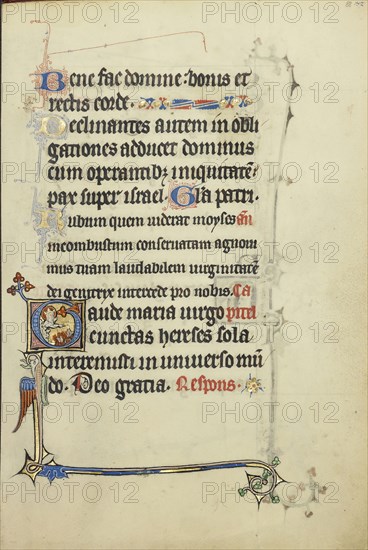 Bene fac domine bonis et
rectis corde.
Declinantes autem in obli
gationes adducet dominus
cum operantibz iniquitatē
pax super israel. Glā patri.
Rubum quem viderat moyses añ
incombustum conseruatam agnoui
mus tuam laudabilem uirginitatē
dei genitrix intercede pro nobis. Ca
Gaude maria uirgo pitel
cunctas hereses sola
interemisti in uniuerso mū
do. Deo gratia. Respons.